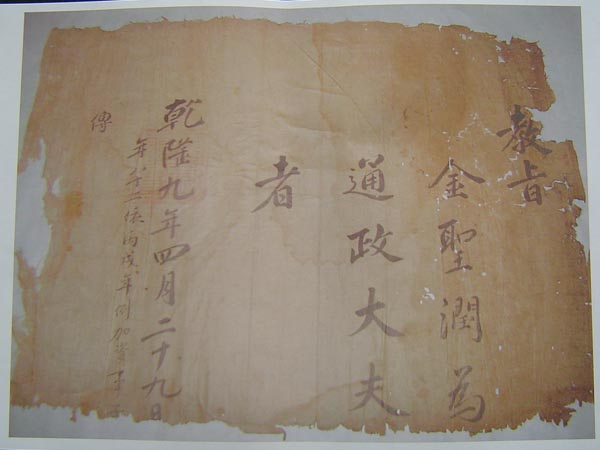 教旨
金聖潤為
通政大夫
者
乾隆九年四月二十九日
年八十二依丙戌年例加資事
傳